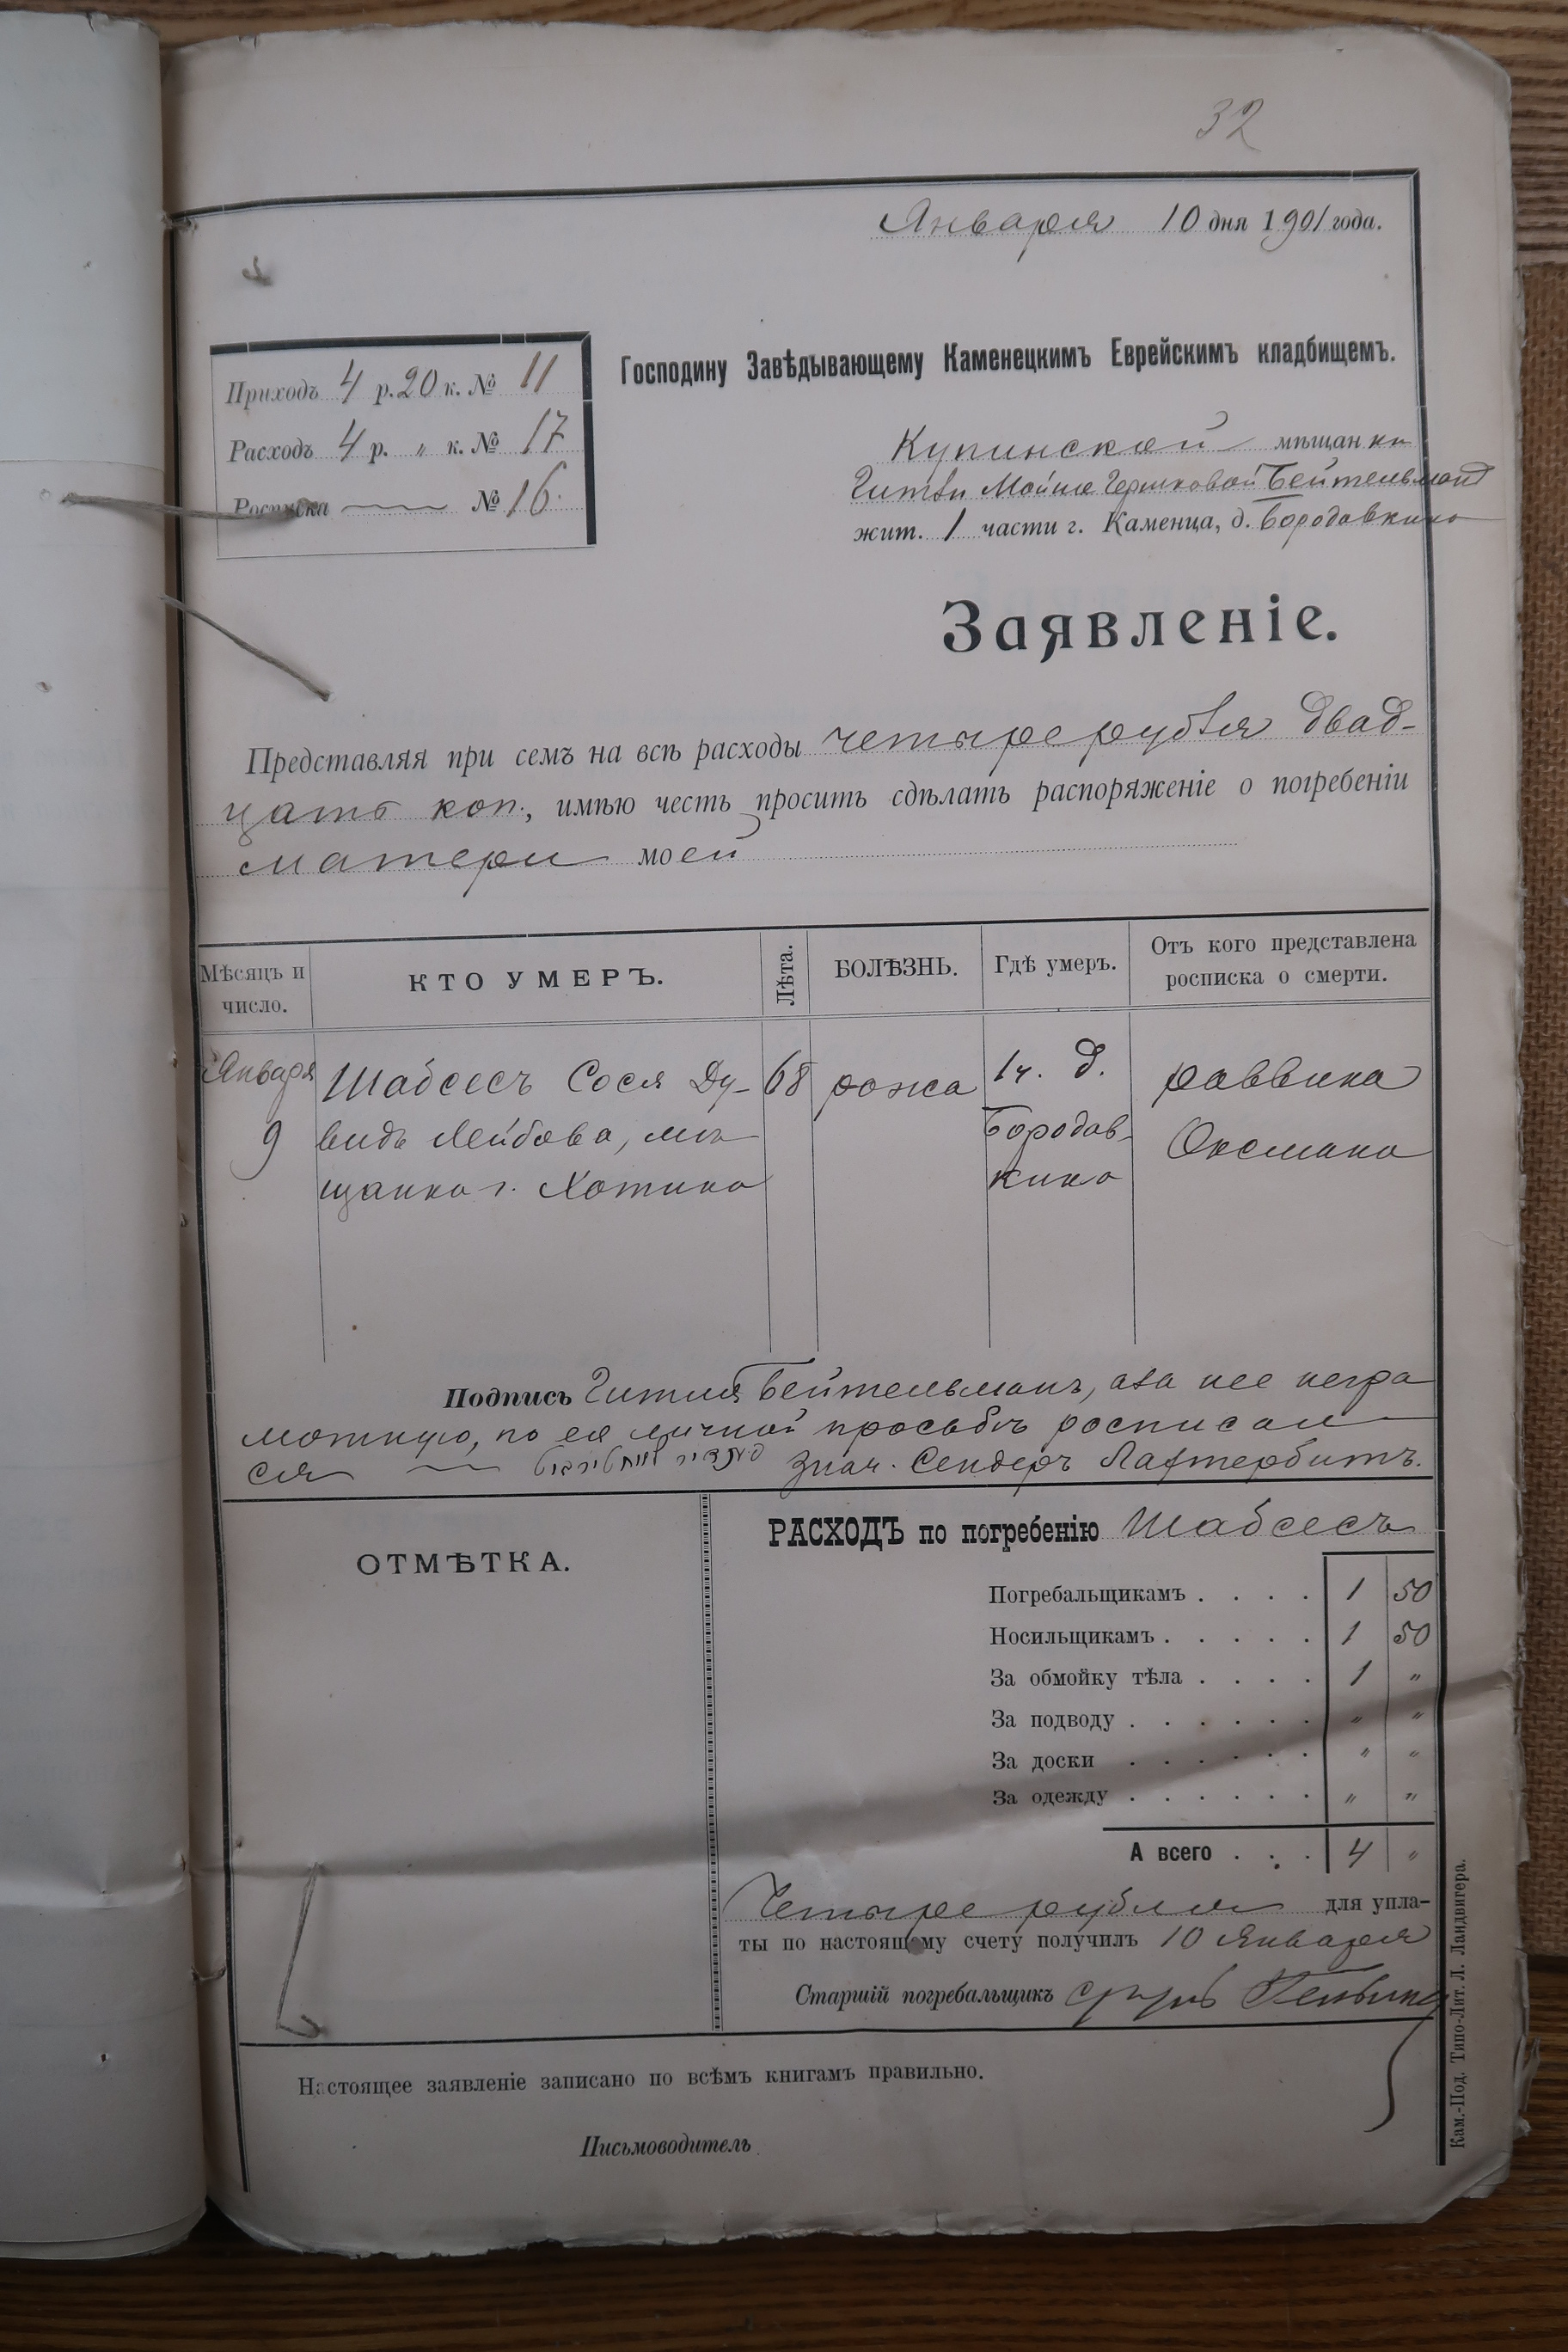 32
Января 10 дня 1901 года.
Приходъ 4 р. 20 к. № 11
Расходъ 4 р. „ к. № 17
Росписка № 16
Господину Завѣдывающему Каменецкимъ Еврейскимъ кладбищемъ.
Купинской мѣщанки
Гитли Мойше Гершковой Бейтельманъ
жит. 1 части г. Каменца, д. Бородавкина
Заявленіе.
Представляя при семъ на всѣ расходы четыре рубля двад-
цать коп., имѣю честь просить сдѣлать распоряженіе о погребеніи
матери моей
Мѣсяцъ и число. КТО УМЕРЪ. Лѣта. БОЛѢЗНЬ. Гдѣ умеръ. Отъ кого представлена росписка о смерти.
Января Шабсесъ Сося Ду- 68 рожа 1 ч. д. раввина
9 видъ Лейбова, мѣ- Бородав- Оксмана
щанка г. Хотина кина
Подпись Гитля Бейтельманъ, а за нее негра
мотную, по ея личной просьбѣ росписал
ся знач. Сендеръ Лафтербитъ.
ОТМѢТКА.
РАСХОДЪ по погребенію Шабсесъ
Погребальщикамъ . . . . 1 50
Носильщикамъ . . . . . 1 50
За обмойку тѣла . . . . 1 „
За подводу . . . . . . „ „
За доски . . . . . . „ „
За одежду . . . . . . „ „
А всего . . . 4 „
Четыре рубля для упла-
ты по настоящему счету получилъ 10 Января
Старшій погребальщикъ
Настоящее заявленіе записано по всѣмъ книгамъ правильно.
Письмоводитель
Кам.-Под. Типо-Лит. Л. Ландвигера.